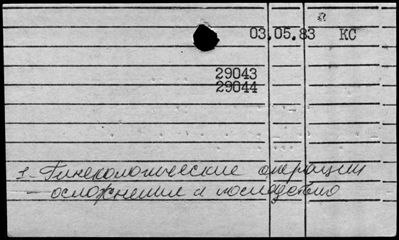 03.05.83 КС
29043
29044
1. Гинекологические операции
- осложнения и последствия